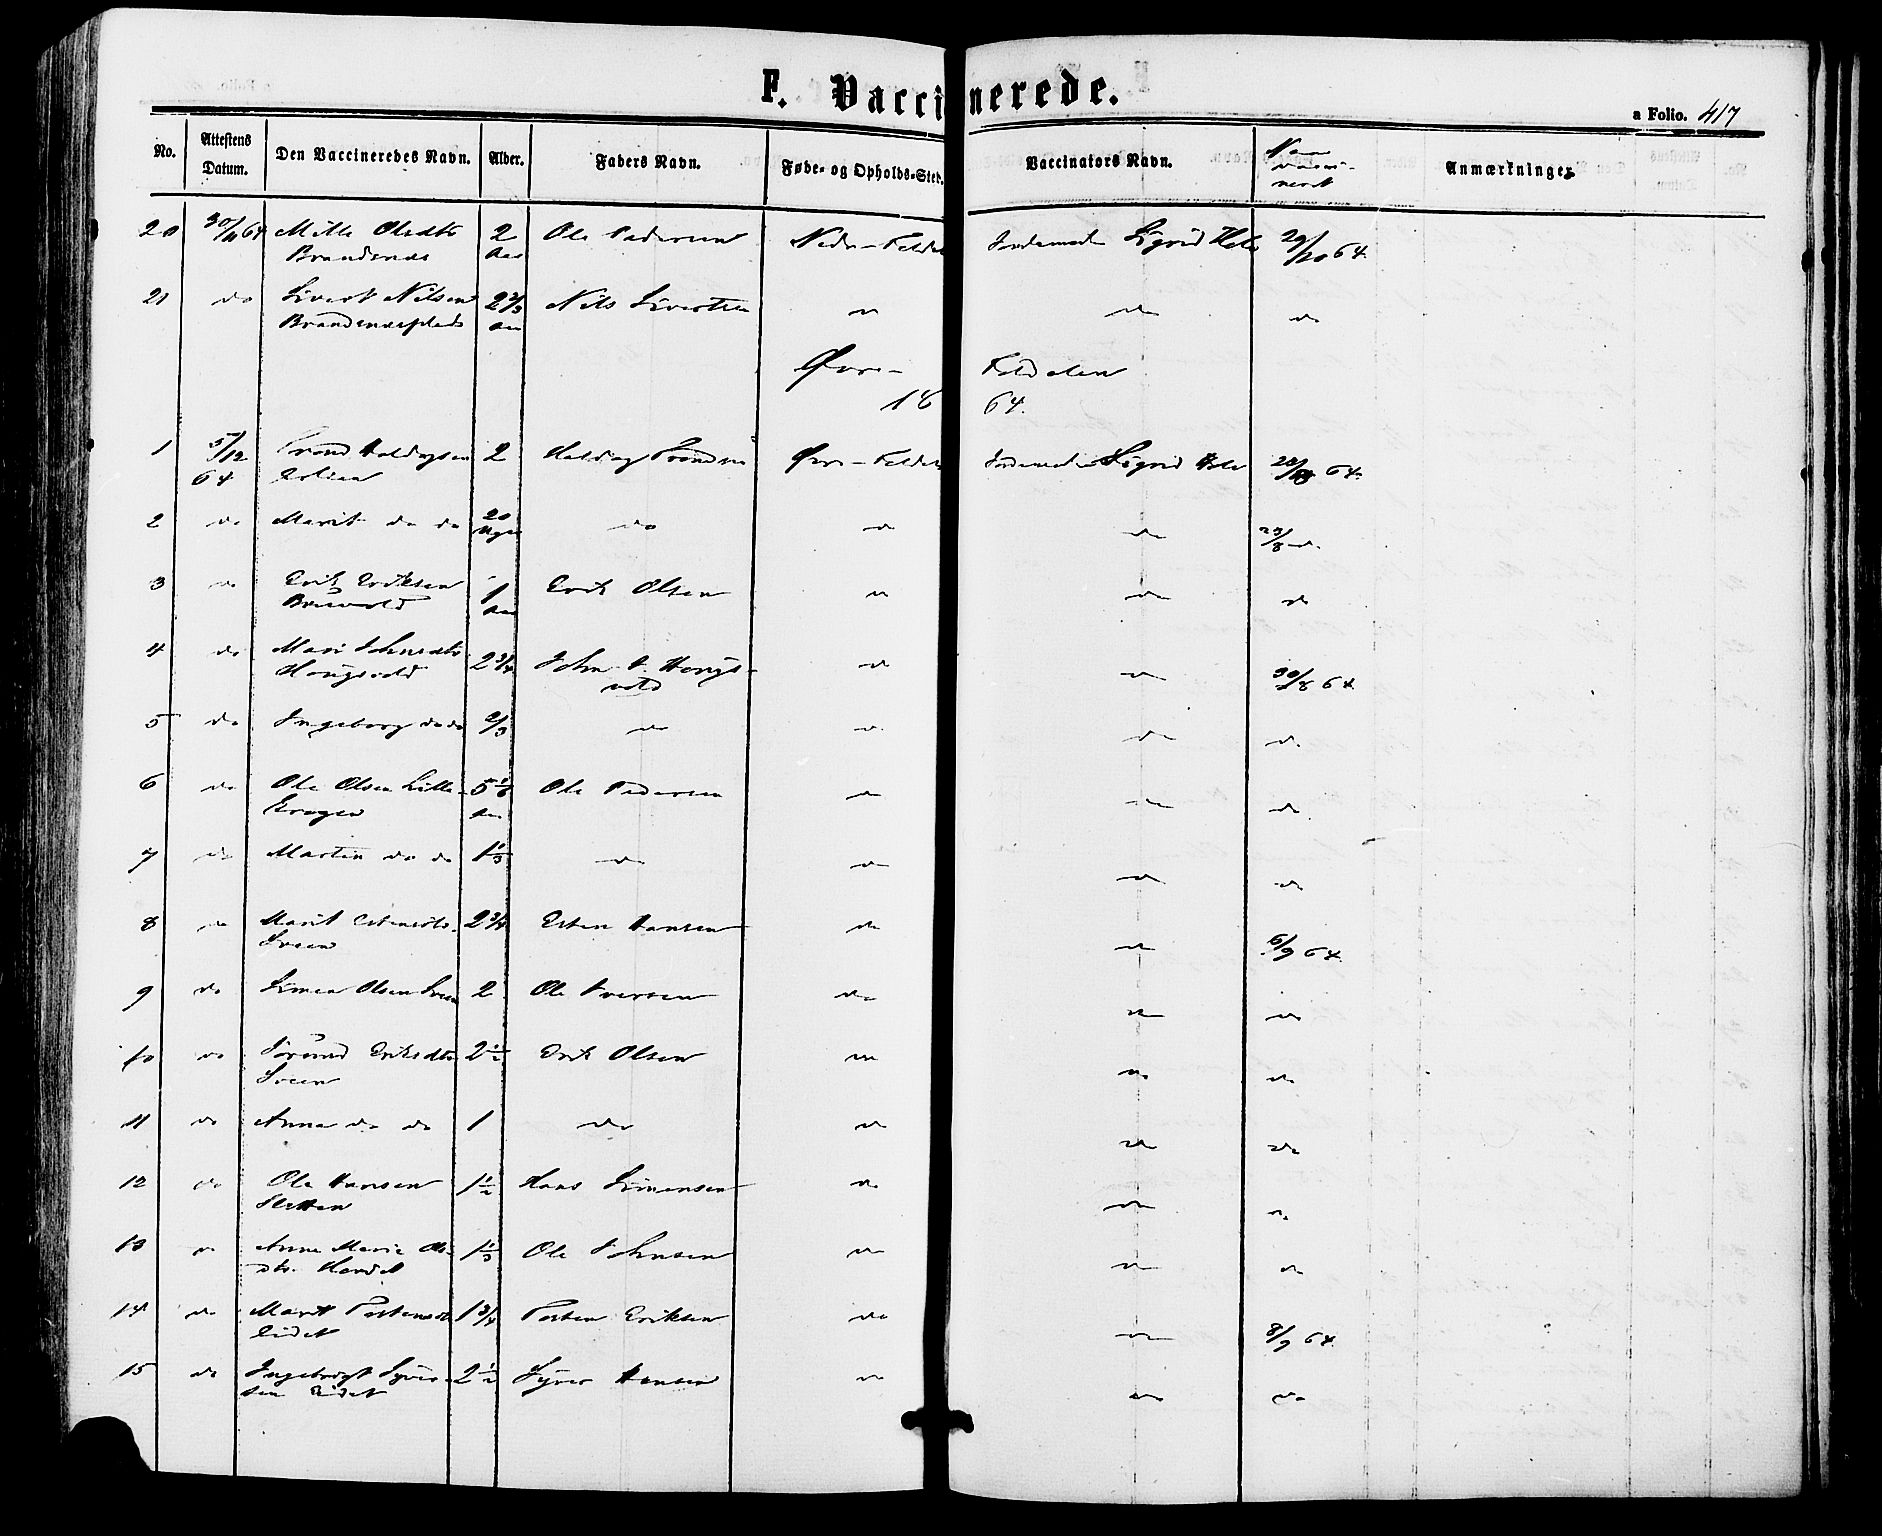 F. Vaccinerede.
a Folio. 417
No. Attestens Datum. Den Vaccineredes Navn. Alder. Faders Navn. Føde- og Opholds-Sted. Vaccinators Navn. Naar vacci-neret Anmærkninger
20 30/11 64 Mille Olsdtr 2 Ole Pedersen Nedre-Foldal Jordemod. Sigrid Hole 29/10 64.
Brandsnæs Aar
21 do Sivert Nilsen 2 2/3 Nils Sivertsen do do do
Aar
Øvre- Foldalen
18 64.
1 5/12 64 Trond Haldogsen 2 Haldog Trondsen Øvre-Foldal Jordemoder Sigrid Hole 64.
2 do Marit do do 20 Uger do do do 23/8 do
3 do Erik Eriksen 1 Erik Olsen do do do
Aar
4 do Mari Johnsdtr 2 3/4 John J. Haugs- do do 30/8 64
Haugsvold vold
5 do Ingeborg do do 2/3 do do do do
6 do Ole Olsen Lille- 5 1/6 Ole Pedersen do do do
krogen Aar
7 do Martin do do 1 1/3 do do do do
8 do Marit Estensdtr. 2 3/4 Esten Hansen do do 6/9 64.
Sveen
9 do Simen Olsen Sveen 2 Ole Iversen do do do
10 do Jørand Eriksdtr 2 1/2 Erik Olsen do do do
Sveen
11 do Anne do do 1 do do do do
12 do Ole Hansen 1 1/2 Hans Simensen do do do
Sletten
13 do Anne Marie Ols- 1 1/3 Ole Johnsen do do do
dtr.
14 do Marit Torstensdtr 1 3/4 Torsten Eriksen do do 8/9 64.
Eidet
15 do Ingebrigt Syver- 2 1/2 Syver Hansen do do do
sen Eidet